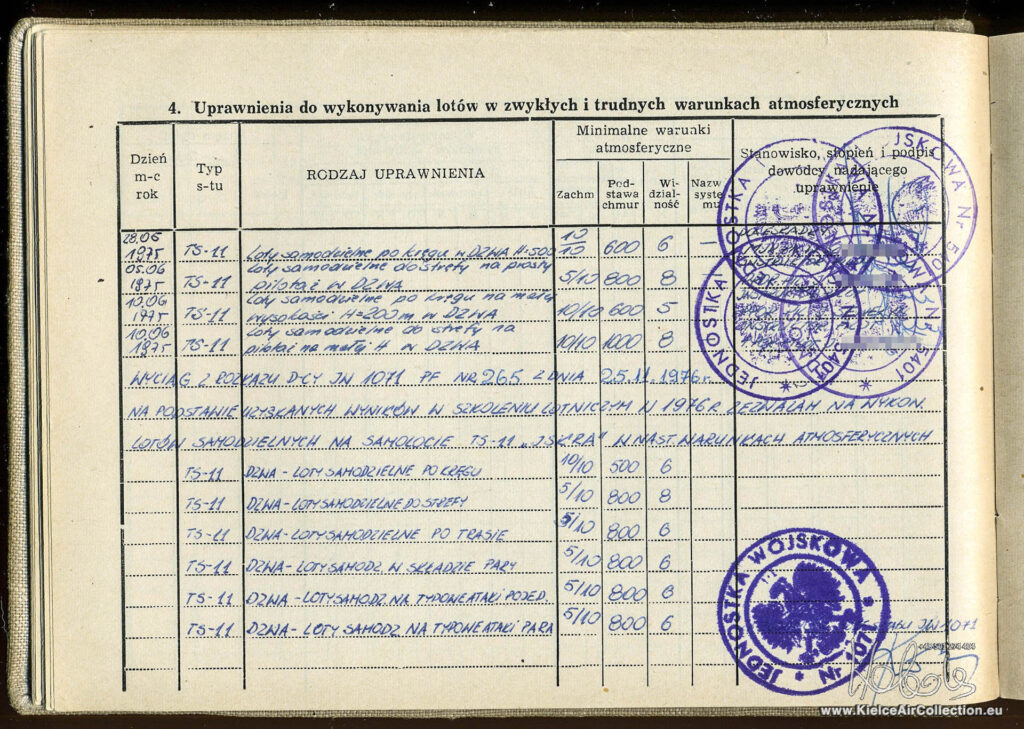 4. Uprawnienia do wykonywania lotów w zwykłych i trudnych warunkach atmosferycznych
Dzień m-c rok
Typ s-tu
RODZAJ UPRAWNIENIA
Minimalne warunki atmosferyczne
Zachm
Pod-stawa chmur
Wi-dzial-ność
Nazw syste-mu
Stanowisko, stopień i podpis dowódcy nadającego uprawnienie
28.06 1975 TS-11 Loty samodzielne po kręgu w DZWA H-500 10/10 600 6 —
05.06 1975 TS-11 Loty samodzielne do strefy na prosty pilotaż w DZWA 5/10 800 8
10.06 1975 TS-11 Loty samodzielne po kręgu na małej wysokości H=200m w DZWA 10/10 600 5
10.06 1975 TS-11 Loty samodzielne do strefy na pilotaż na małej H w DZWA 10/10 1000 8
WYCIĄG Z ROZKAZU D-CY JW 1071 PF NR 265 Z DNIA 25.11.1976 r.
NA PODSTAWIE UZYSKANYCH WYNIKÓW W SZKOLENIU LOTNICZYM W 1976 R ZEZWALAM NA WYKON.
LOTÓW SAMODZIELNYCH NA SAMOLOCIE TS-11 „ISKRA" W NAST. WARUNKACH ATMOSFERYCZNYCH
TS-11 DZWA - LOTY SAMODZIELNE PO KRĘGU 10/10 500 6
TS-11 DZWA - LOTY SAMODZIELNE DO STREFY 5/10 800 8
TS-11 DZWA - LOTY SAMODZIELNE PO TRASIE 5/10 800 6
TS-11 DZWA - LOTY SAMODZ. W SKŁADZIE PARY 5/10 800 6
TS-11 DZWA - LOTY SAMODZ. NA TYPOWE ATAKI POJED. 5/10 800 8
TS-11 DZWA - LOTY SAMODZ. NA TYPOWE ATAKI PARĄ 5/10 800 6
JEDNOSTKA
JSKOWA Nr 5
JEDNOSTKA
Nr 5401
JEDNOSTKA WOJSKOWA * Nr 1071 *
JW 1071
www.KielceAirCollection.eu